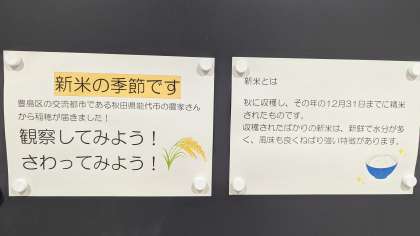 新米の季節です
豊島区の交流都市である秋田県能代市の農家さん
から稲穂が届きました!
観察してみよう!
さわってみよう!
新米とは
秋に収穫し、その年の12月31日までに精米
されたものです。
収穫されたばかりの新米は、新鮮で水分が多
く、風味も良くねばり強い特徴があります。